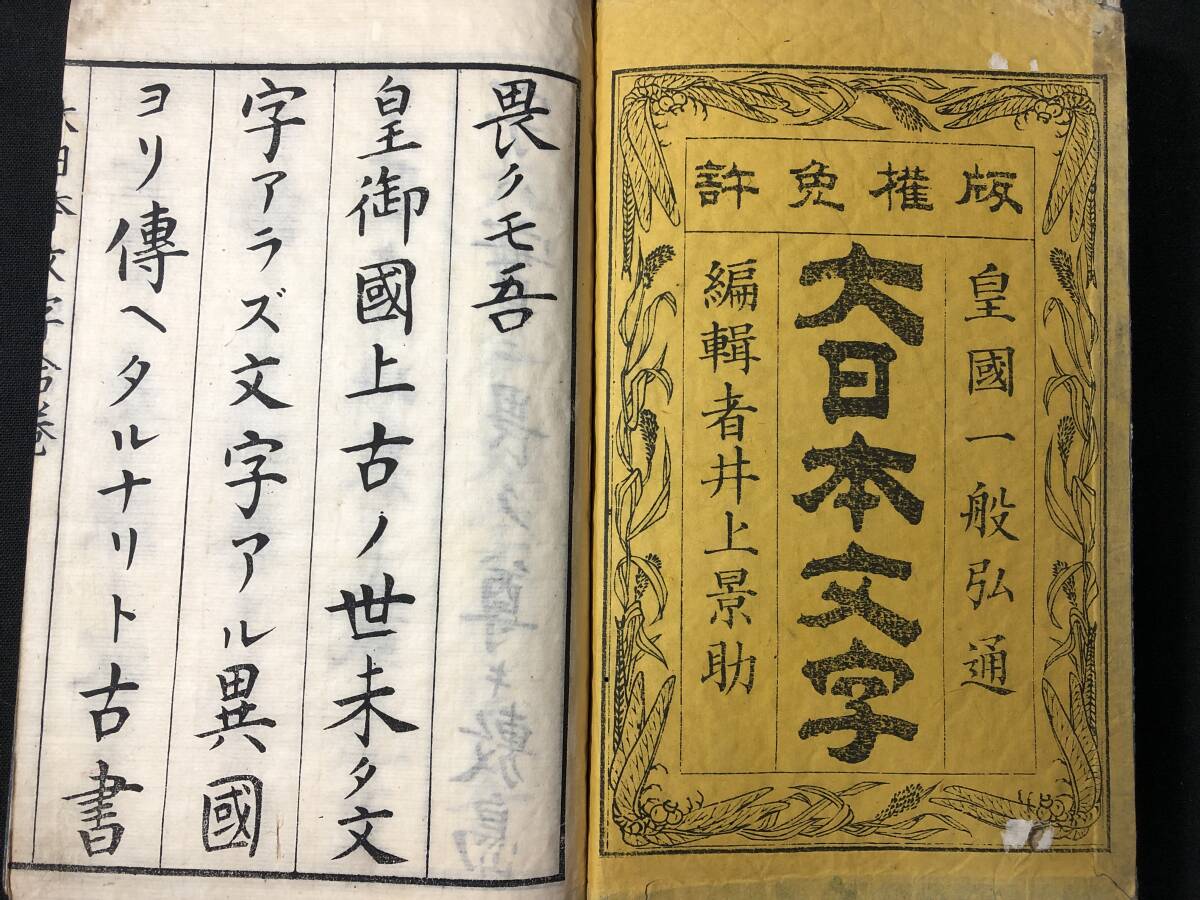 版權免許
皇國一般弘通
大日本文字
編輯者井上景助
畏クモ吾
皇御國上古ノ世未タ文
字アラズ文字アル異國
ヨリ傳ヘタルナリト古書
大日本文字